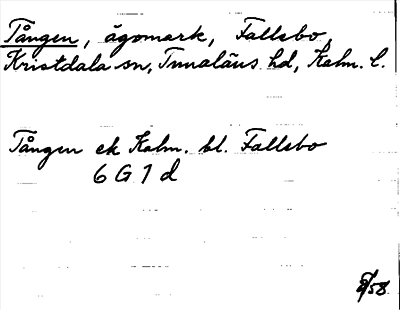 Tången, ägomark, Fallebo,
Kristdala sn, Tunaläns hd, Kalm. l.
Tången ek Kalm. bl. Fallebo
6 G 1 d